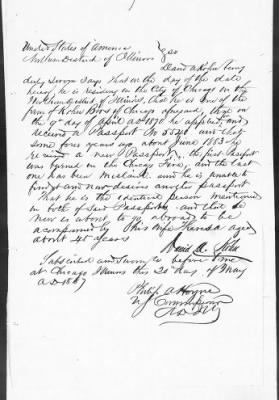 United States of America
Northern District of Illinois } ss
David A Kohn being
duly sworn says that on the day of the date
hereof, he is residing in the City of Chicago in the
Northern District of Illinois, that he is one of the
firm of Kohn Bros of Chicago aforesaid, that on
the 9th day of April AD 1870 he applied, and
received a Passport No and that
some years ago about June 1883 he
received a new Passport, the first Passport
was burned in the Chicago Fire, and the last
one has been mislaid and he is unable to
find it and now desires another passport
That he is the identical person mentioned
in both of said Passports and that he
now is about to go abroad to be
accompanied by his wife Theresa aged
about 45 years
David A. Kohn
Subscribed and sworn to before me
at Chicago Illinois this 25 day of May
AD 1887
Philip A Hoyne
U S Commissioner